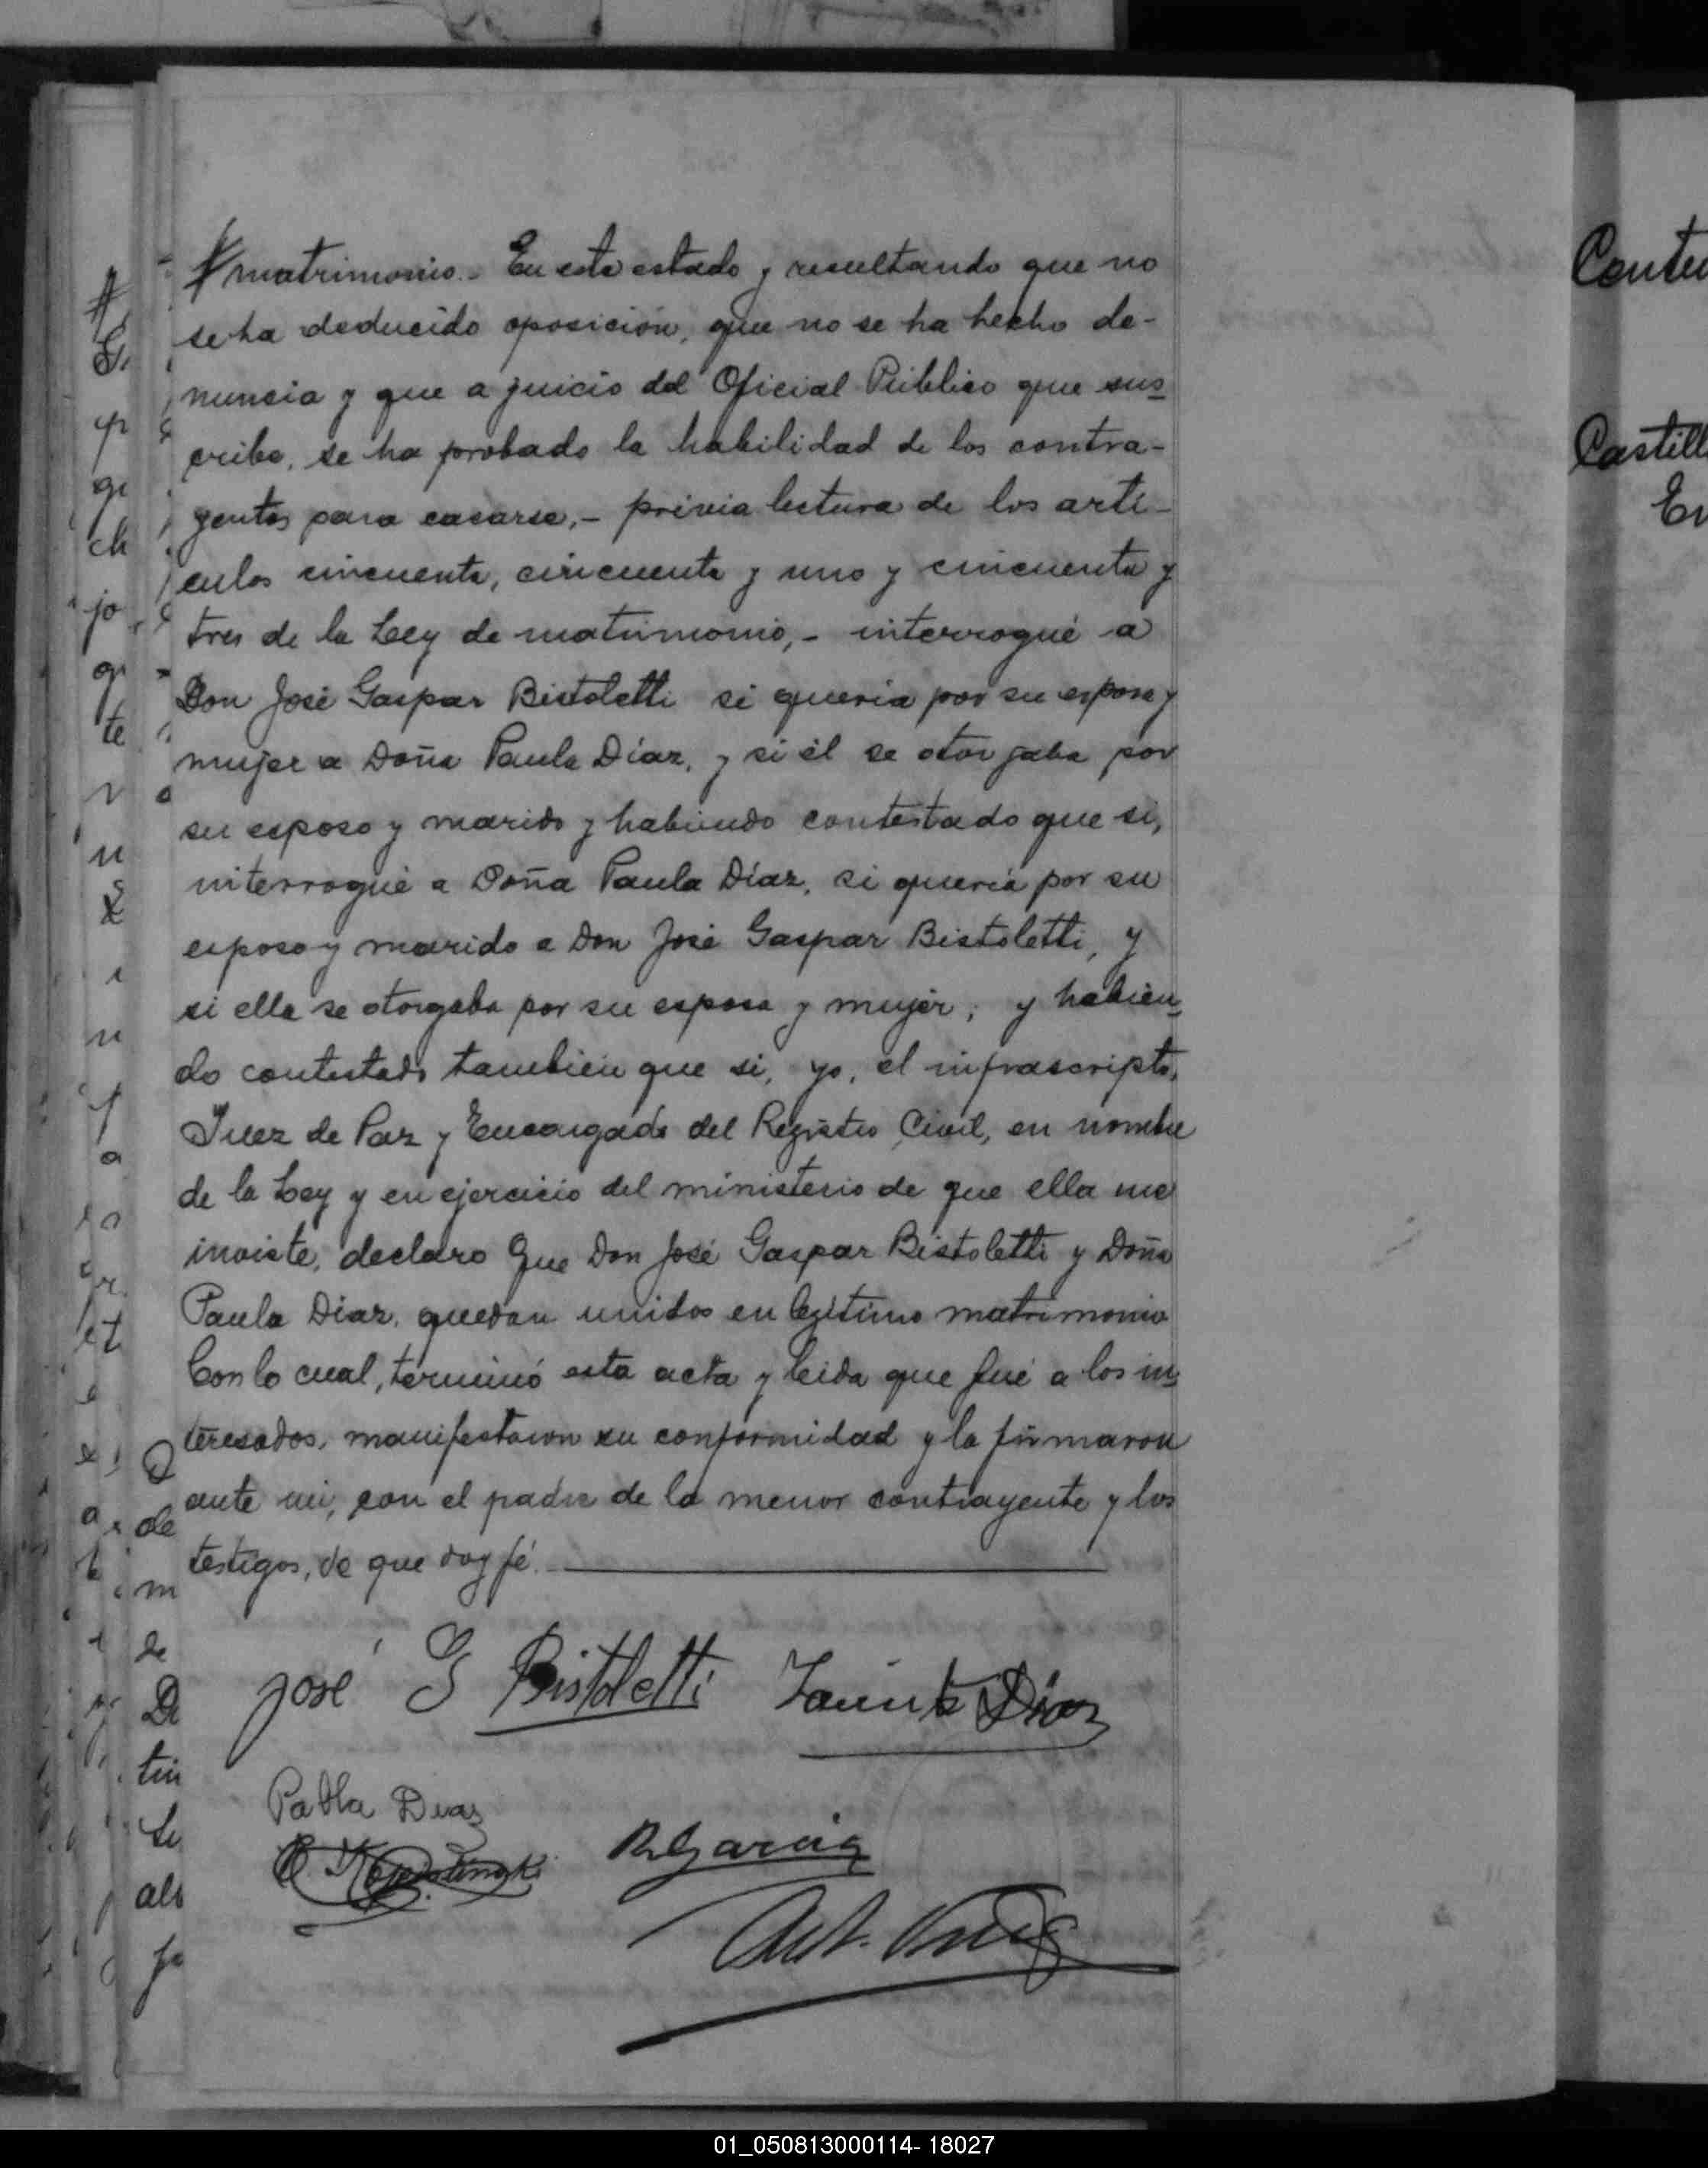 matrimonio.- En este estado y resultando que no
se ha deducido oposición, que no se ha hecho de-
nuncia y que a juicio del Oficial Público que sus-
cribe, se ha probado la habilidad de los contra-
yentes para casarse,- previa lectura de los artí-
culos cincuenta, cincuenta y uno y cincuenta y
tres de la Ley de matrimonio,- interrogué a
Don José Gaspar Bistoletti si quería por su esposa y
mujer a Doña Paula Díaz, y si él se otorgaba por
su esposo y marido y habiendo contestado que si,
interrogué a Doña Paula Díaz, si quería por su
esposo y marido a Don José Gaspar Bistoletti, y
si ella se otorgaba por su esposa y mujer; y habien-
do contestado también que si, yo, el infrascripto,
Juez de Paz y Encargado del Registro Civil, en nombre
de la Ley y en ejercicio del ministerio de que ella me
inviste, declaro que Don José Gaspar Bistoletti y Doña
Paula Díaz, quedan unidos en legítimo matrimonio
Con lo cual, terminó esta acta y leida que fué a los in-
teresados, manifestaron su conformidad y la firmaron
ante mi, con el padre de la menor contrayente y los
testigos, de que doy fé.
José G Bistoletti Díaz
Pabla Diaz
R. Garcia
Conte
Castill
01_050813000114- 18027